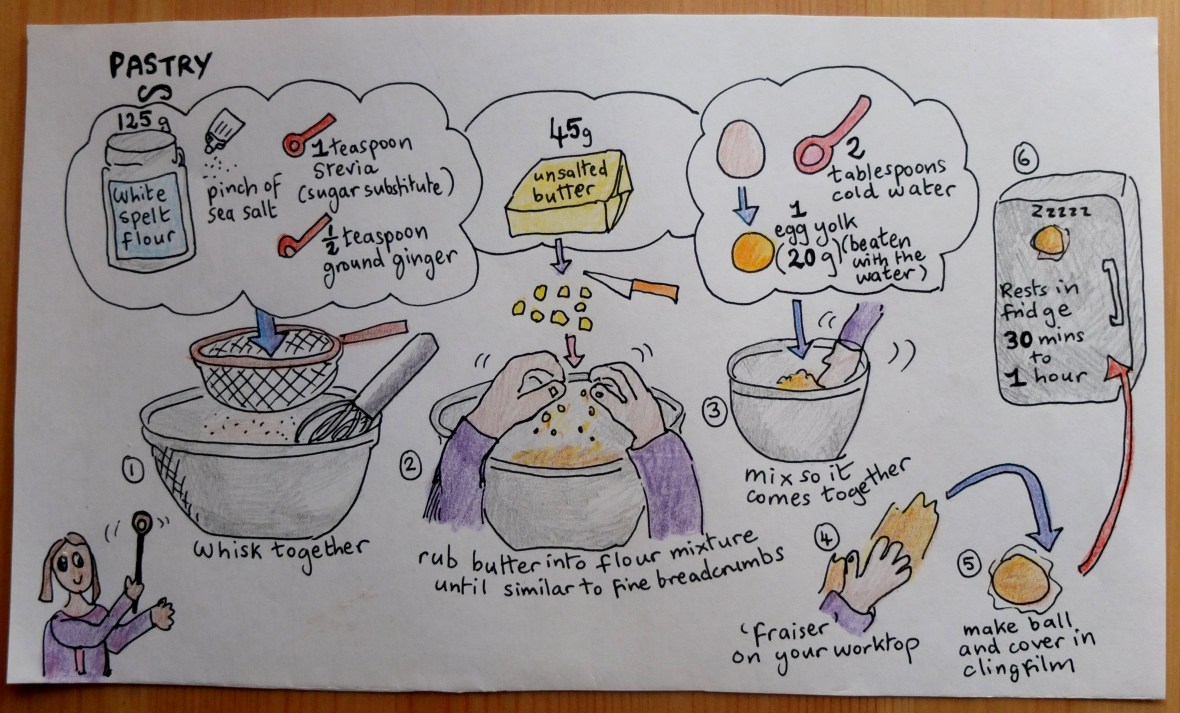 PASTRY
125g
White
spelt
flour
pinch of
sea salt
1 teaspoon
stevia
(sugar substitute)
1/2 teaspoon
ground ginger
45g
unsalted
butter
2
tablespoons
cold water
1
egg yolk
(20g) (beaten
with the
water)
1
whisk together
2
rub butter into flour mixture
until similar to fine breadcrumbs
3
mix so it
comes together
4
'fraiser'
on your worktop
5
make ball
and cover in
clingfilm
6
Zzzzz
Rests in
fridge
30 mins
to
1 hour